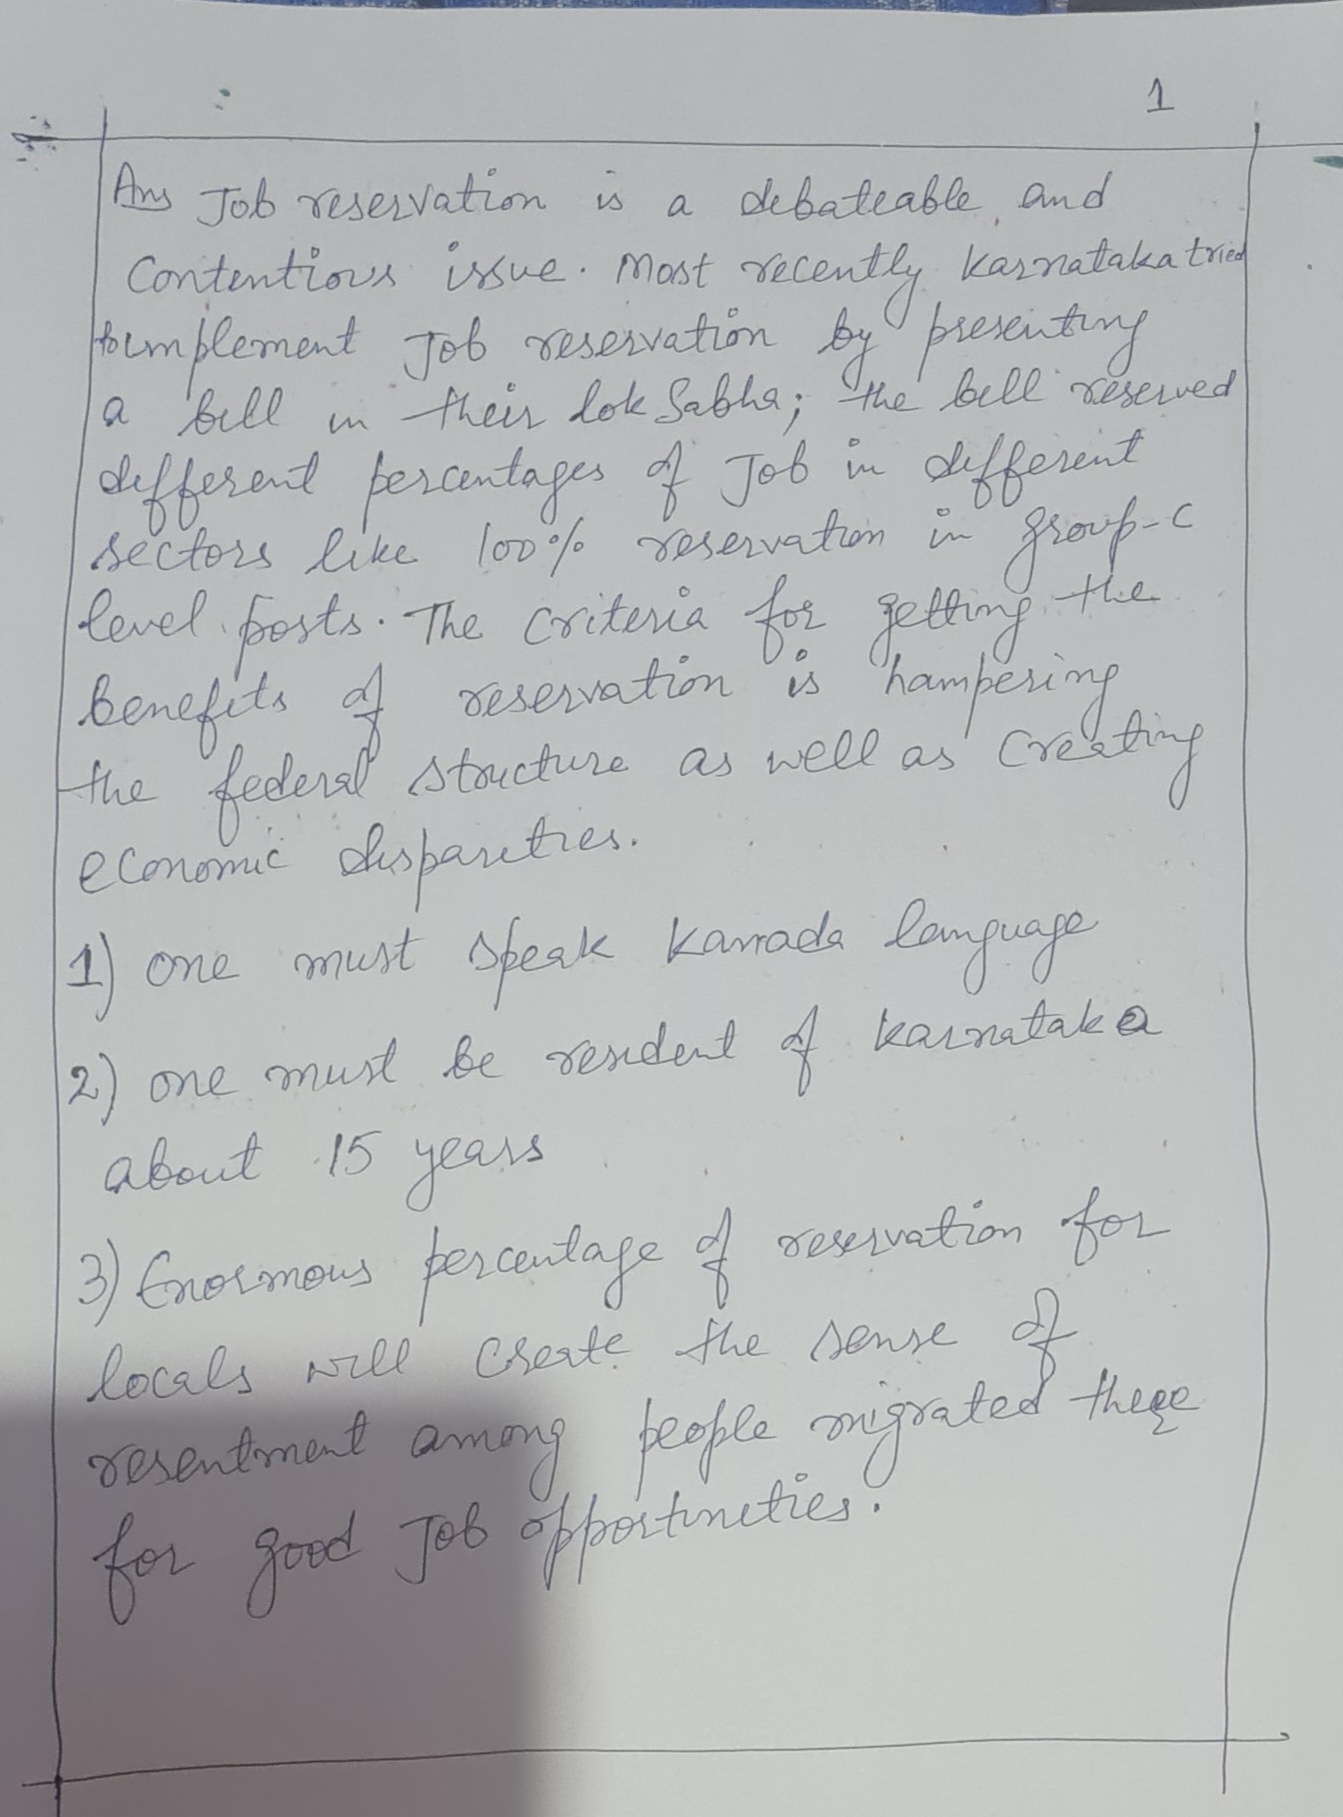 1
Ans Job reservation is a debateable and
Contentious issue. Most recently Karnataka tried
to implement Job reservation by presenting
a bill in their lok Sabha; the bill reserved
different percentages of Job in different
sectors like 100% reservation in group-C
level posts. The criteria for getting the
benefits of reservation is hampering
the federal structure as well as Creating
economic disparities.
1) one must speak Kannada language
2) one must be resident of Karnataka
about 15 years
3) Enormous percentage of reservation for
locals will create the sense of
resentment among people migrated there
for good Job opportunities.